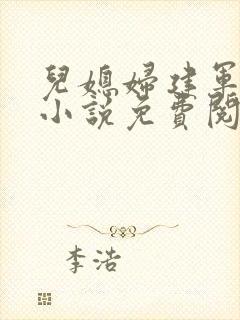 兒媳婦建軍
小說免費閱
李浩